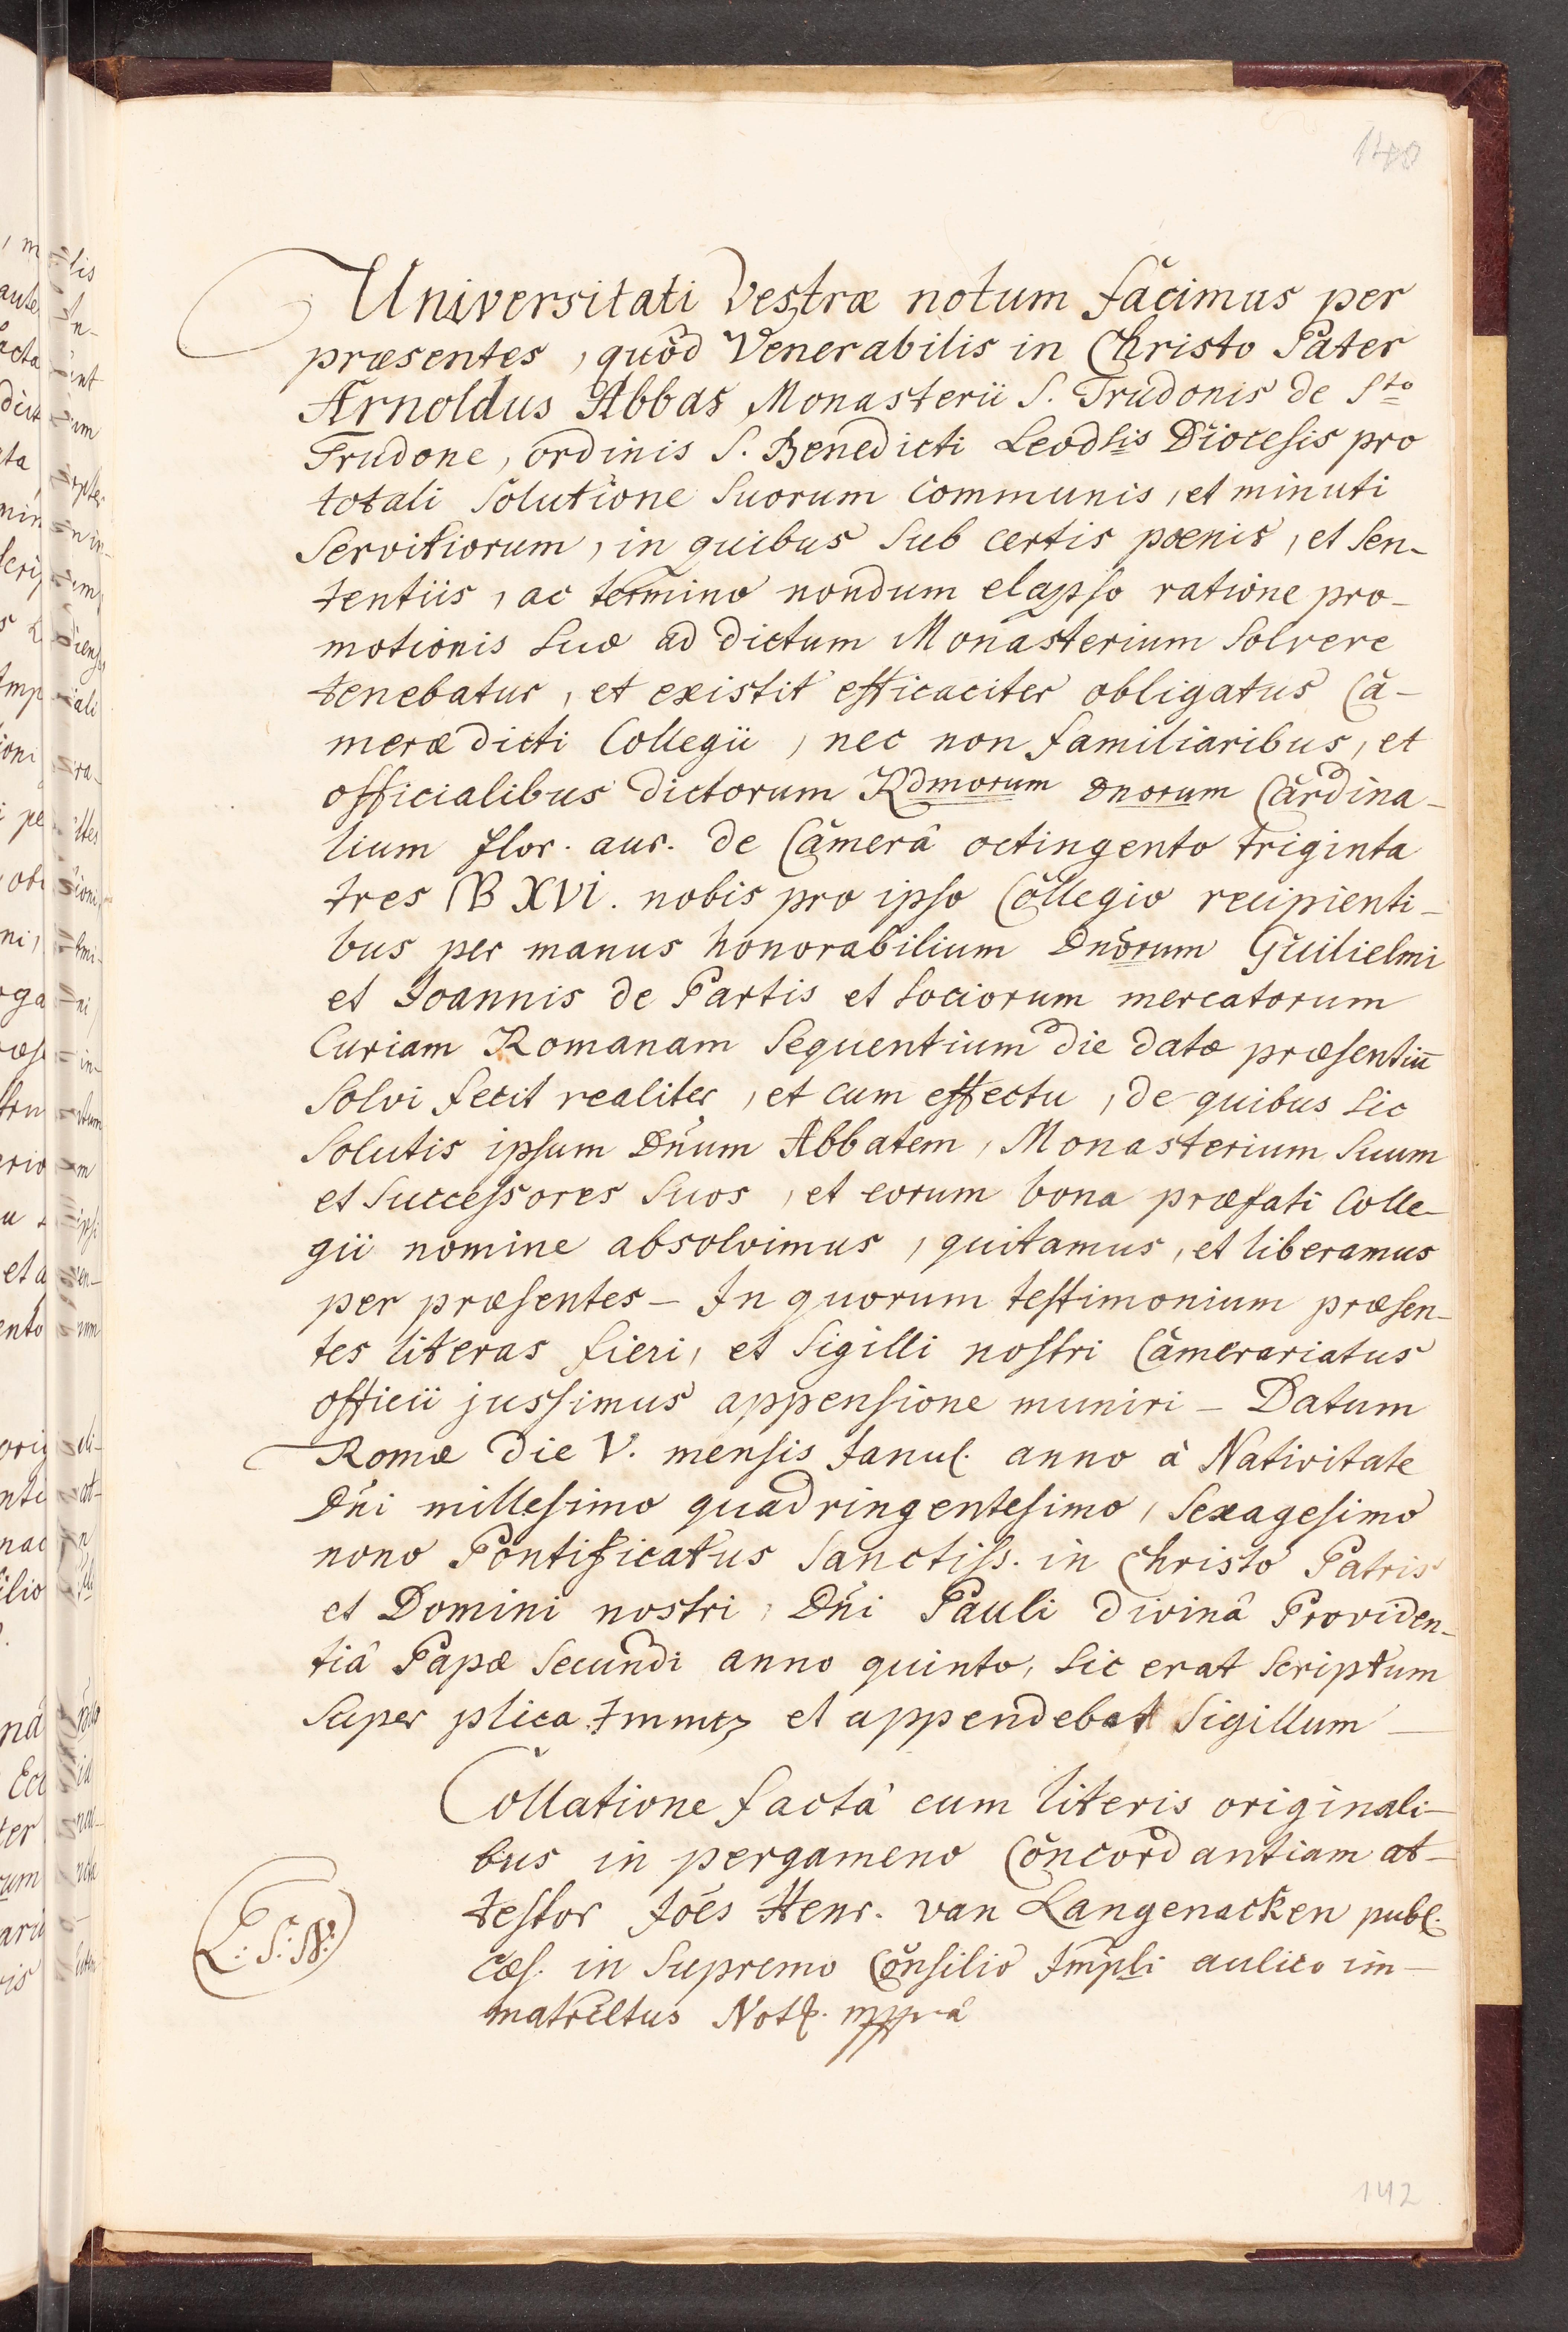 140
Universitati Vestræ notum facimus per
præsentes, quod Venerabilis in Christo Pater
Arnoldus Abbas Monasterii S. Trudonis de Sto
Trudone, ordinis S. Benedicti Leodsis Diocesis pro
totali solutione suorum communis, et minuti
servitiorum, in quibus sub certis pœnis, et sen-
tentiis, ac termino nondum elapso ratione pro-
motionis suæ ad dictum Monasterium solvere
tenebatur, et existit efficaciter obligatus Ca-
meræ dicti Collegii, nec non familiaribus, et
officialibus dictorum Rdmorum Dnorum Cardina-
lium flor. aur. de Camerâ octingento triginta
tres XVI. nobis pro ipso Collegio recipienti-
bus per manus honorabilium Dnorum Guilielmi
et Joannis de Partis et sociorum mercatorum
Curiam Romanam sequentium die datæ præsentiū
solvi fecit realiter, et cum effectu, de quibus sic
solutis ipsum Dñum Abbatem, Monasterium suum
et successores suos, et eorum bona præfati Colle-
gii nomine absolvimus, quitamus, et liberamus
per præsentes - In quorum testimonium præsen-
tes literas fieri, et sigilli nostri Camerariatus
officii jussimus appensione muniri - Datum
Romæ die V. mensis Janu. anno à Nativitate
Dñi millesimo quadringentesimo, sexagesimo
nono Pontificatus Sanctiss. in Christo Patris
et Domini nostri, Dñi Pauli divinâ Providen-
tiâ Papæ secundi anno quinto, sic erat scriptum
super plica et appendebat sigillum -
Collatione factâ cum literis originali-
bus in pergameno Concordantiam at-
testor Joēs Henr. van Langenacken publ.
L: S: N:
Cæs. in Supremo Consilio Impli aulico im-
matrcltus Not. mppriâ
142